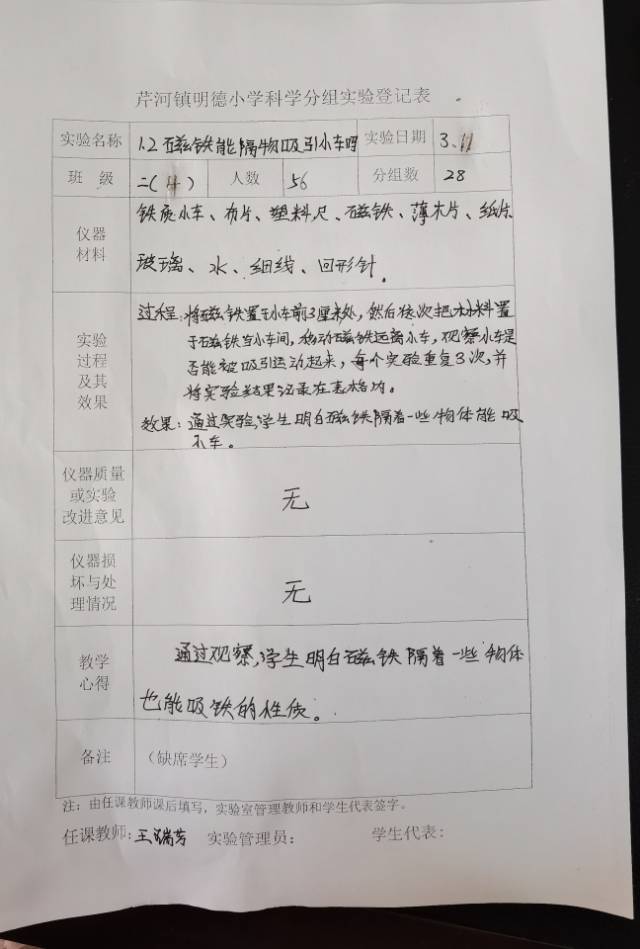 芹河镇明德小学科学分组实验登记表
实验名称 1.2磁铁能隔物吸引小车吗 实验日期 3.11
班 级 二(4) 人数 56 分组数 28
仪器材料 铁质小车、布片、塑料尺、磁铁、薄木片、纸片
玻璃、水、细线、回形针.
实验过程及其效果 过程:将磁铁置于小车前3厘米处,然后依次把材料置
于磁铁与小车间,移动磁铁远离小车,观察小车是
否能被吸引运动起来,每个实验重复3次,并
将实验结果记录在表格内。
效果:通过实验,学生明白磁铁隔着一些物体能吸
小车。
仪器质量或实验改进意见 无
仪器损坏与处理情况 无
教学心得 通过观察,学生明白磁铁隔着一些物体
也能吸铁的性质。
备注 (缺席学生)
注:由任课教师课后填写,实验室管理教师和学生代表签字。
任课教师:王瑞芳 实验管理员: 学生代表: